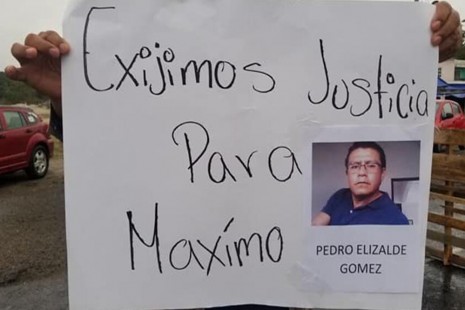 Exijimos Justicia
Para
Maxímo
PEDRO ELIZALDE
GOMEZ